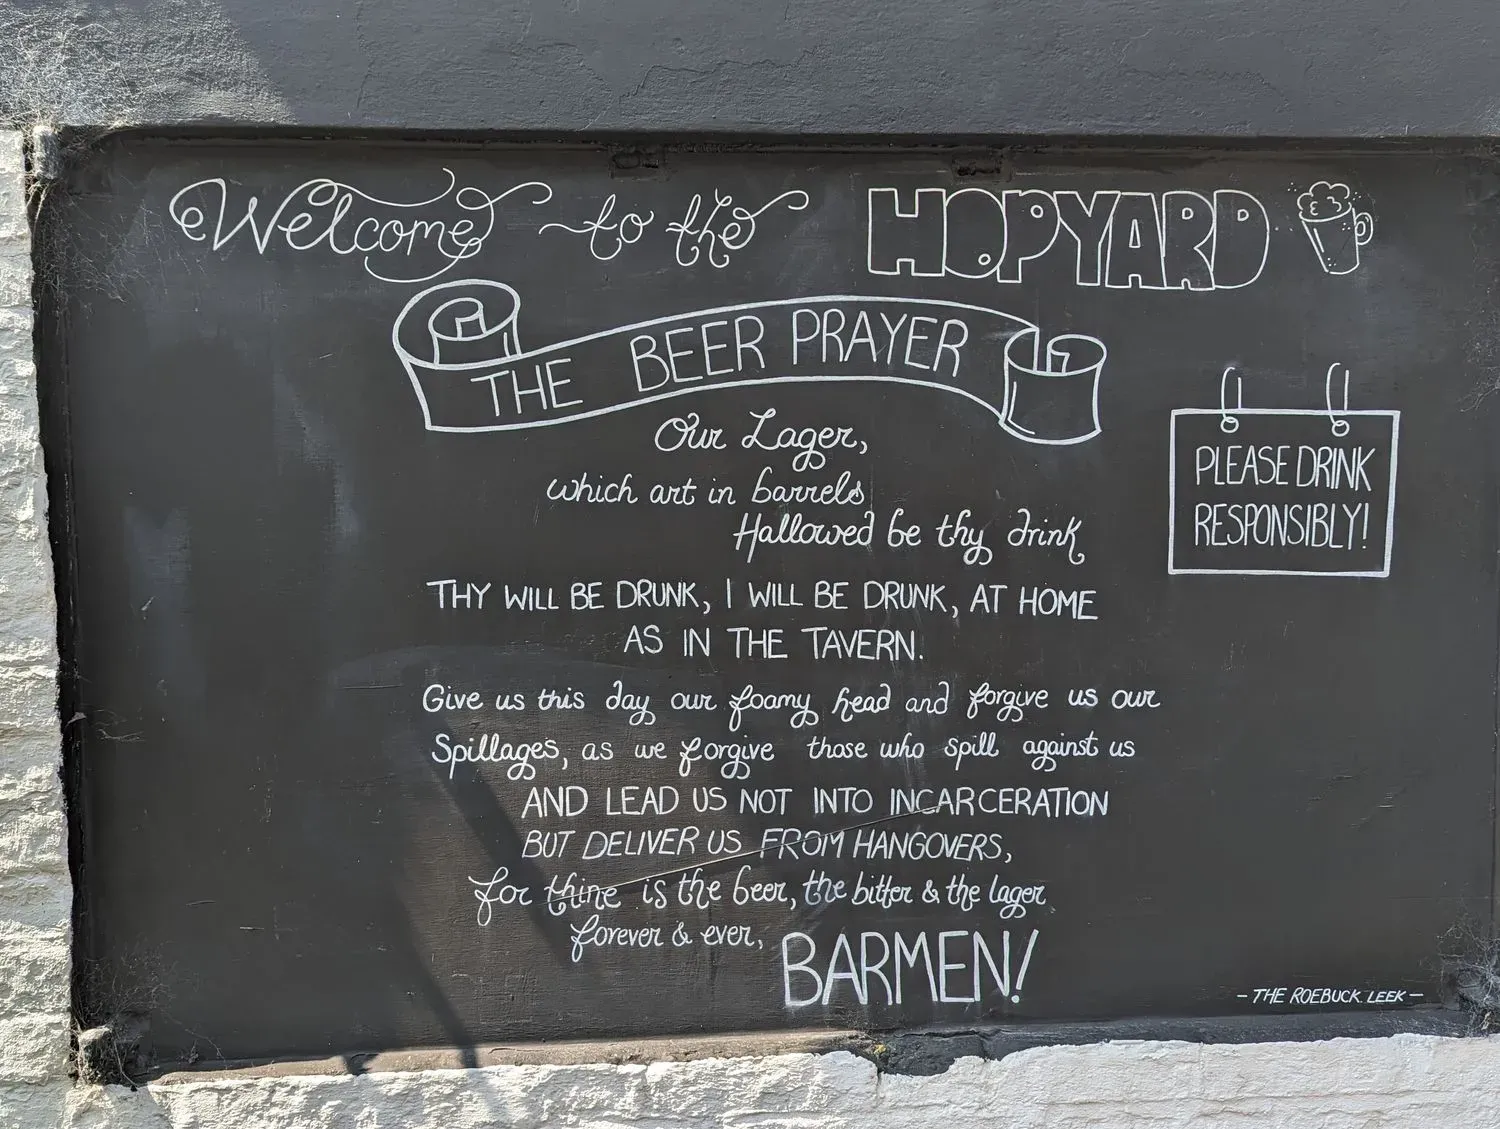 Welcome to the HOPYARD
THE BEER PRAYER
Our Lager,
which art in barrels
Hallowed be thy drink
THY WILL BE DRUNK, I WILL BE DRUNK, AT HOME
AS IN THE TAVERN.
Give us this day our foamy head and forgive us our
Spillages, as we forgive those who spill against us
AND LEAD US NOT INTO INCARCERATION
BUT DELIVER US FROM HANGOVERS,
for thine is the beer, the bitter & the lager
forever & ever,
BARMEN!
PLEASE DRINK
RESPONSIBLY!
- THE ROEBUCK. LEEK -